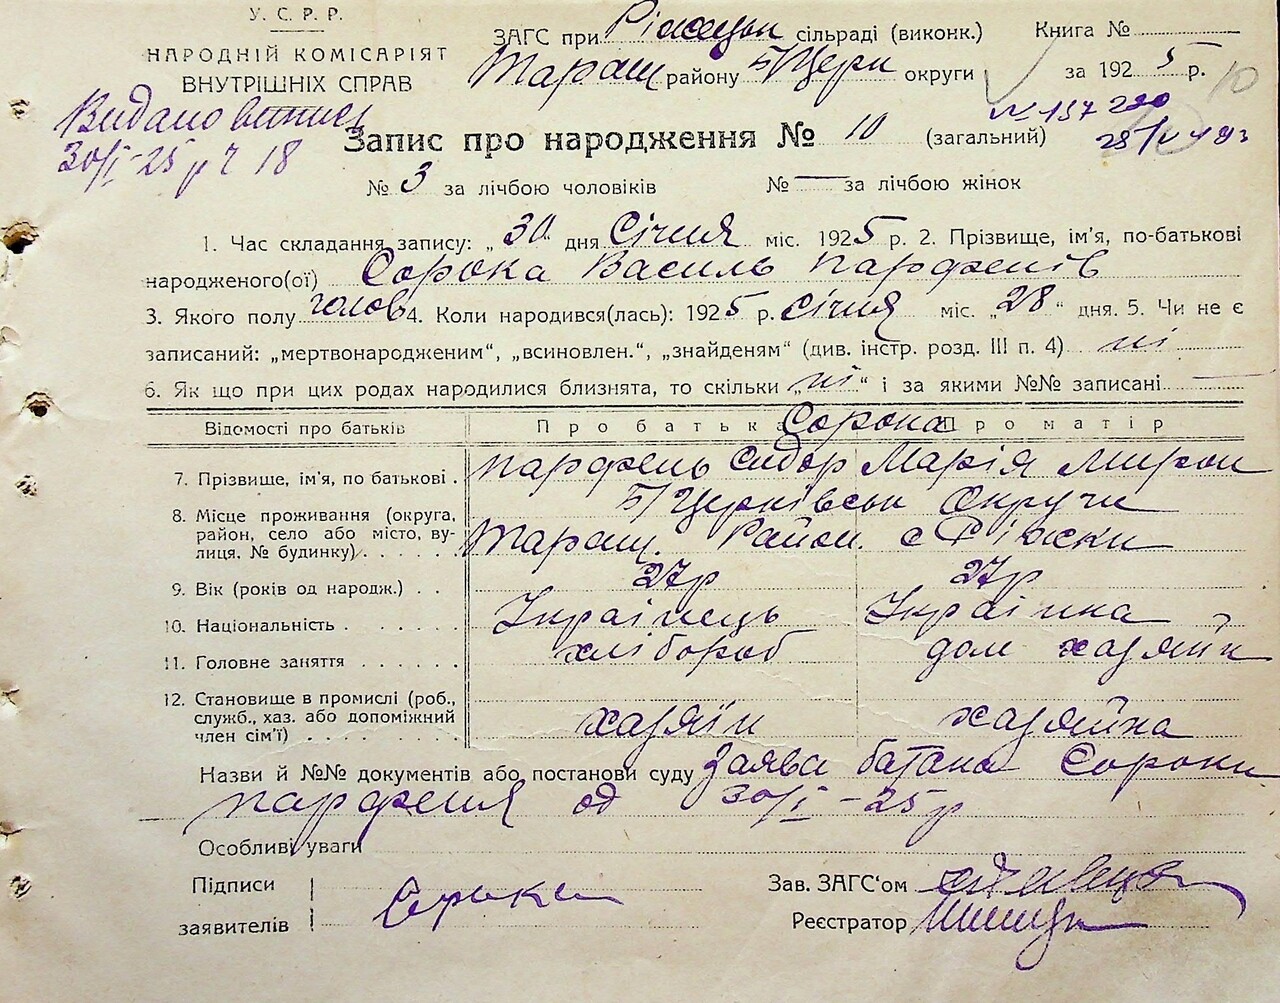 У. С. Р. Р.
НАРОДНІЙ КОМІСАРІЯТ
ВНУТРІШНІХ СПРАВ
ЗАГС при Ріжецьк сільраді (виконк.) Книга №
Таращ району Б/Церк округи за 1925 р. 10
Видано витяг № 157220
30/I-25 р Ч 18
Запис про народження № 10 (загальний)
№ 3 за лічбою чоловіків № — за лічбою жінок
1. Час складання запису: „30“ дня Січня міс. 1925 р. 2. Прізвище, ім'я, по-батькові
народженого(ої) Сорока Василь Парфенів
3. Якого полу чолов 4. Коли народився(лась): 1925 р. січня міс. „28“ дня. 5. Чи не є
записаний: „мертвонародженим“, „всиновлен.“, „знайденям“ (див. інстр. розд. III п. 4) ні
6. Як що при цих родах народилися близнята, то скільки „ні“ і за якими №№ записані —
Відомості про батьків Про батька Про матір
Сорока
7. Прізвище, ім'я, по батькові . Парфень Сидор Марія Мирон
8. Місце проживання (округа, район, село або місто, вулиця, № будинку) . . . . Б/Церківськ Округи
Таращ. Район. с Ріжки
9. Вік (років од народж.) . . 27р 27р
10. Національність . . . . . . Українець Українка
11. Головне заняття . . . . . . хлібороб дом хазяйк
12. Становище в промислі (роб., служб., хаз. або допоміжний член сім'ї) . . . . . . . . хазяїн хазяйка
Назви й №№ документів або постанови суду Заява батька Сороки
Парфенія од 30/I-25р
Особливі уваги
Підписи заявителів Сорока
Зав. ЗАГС'ом
Реєстратор